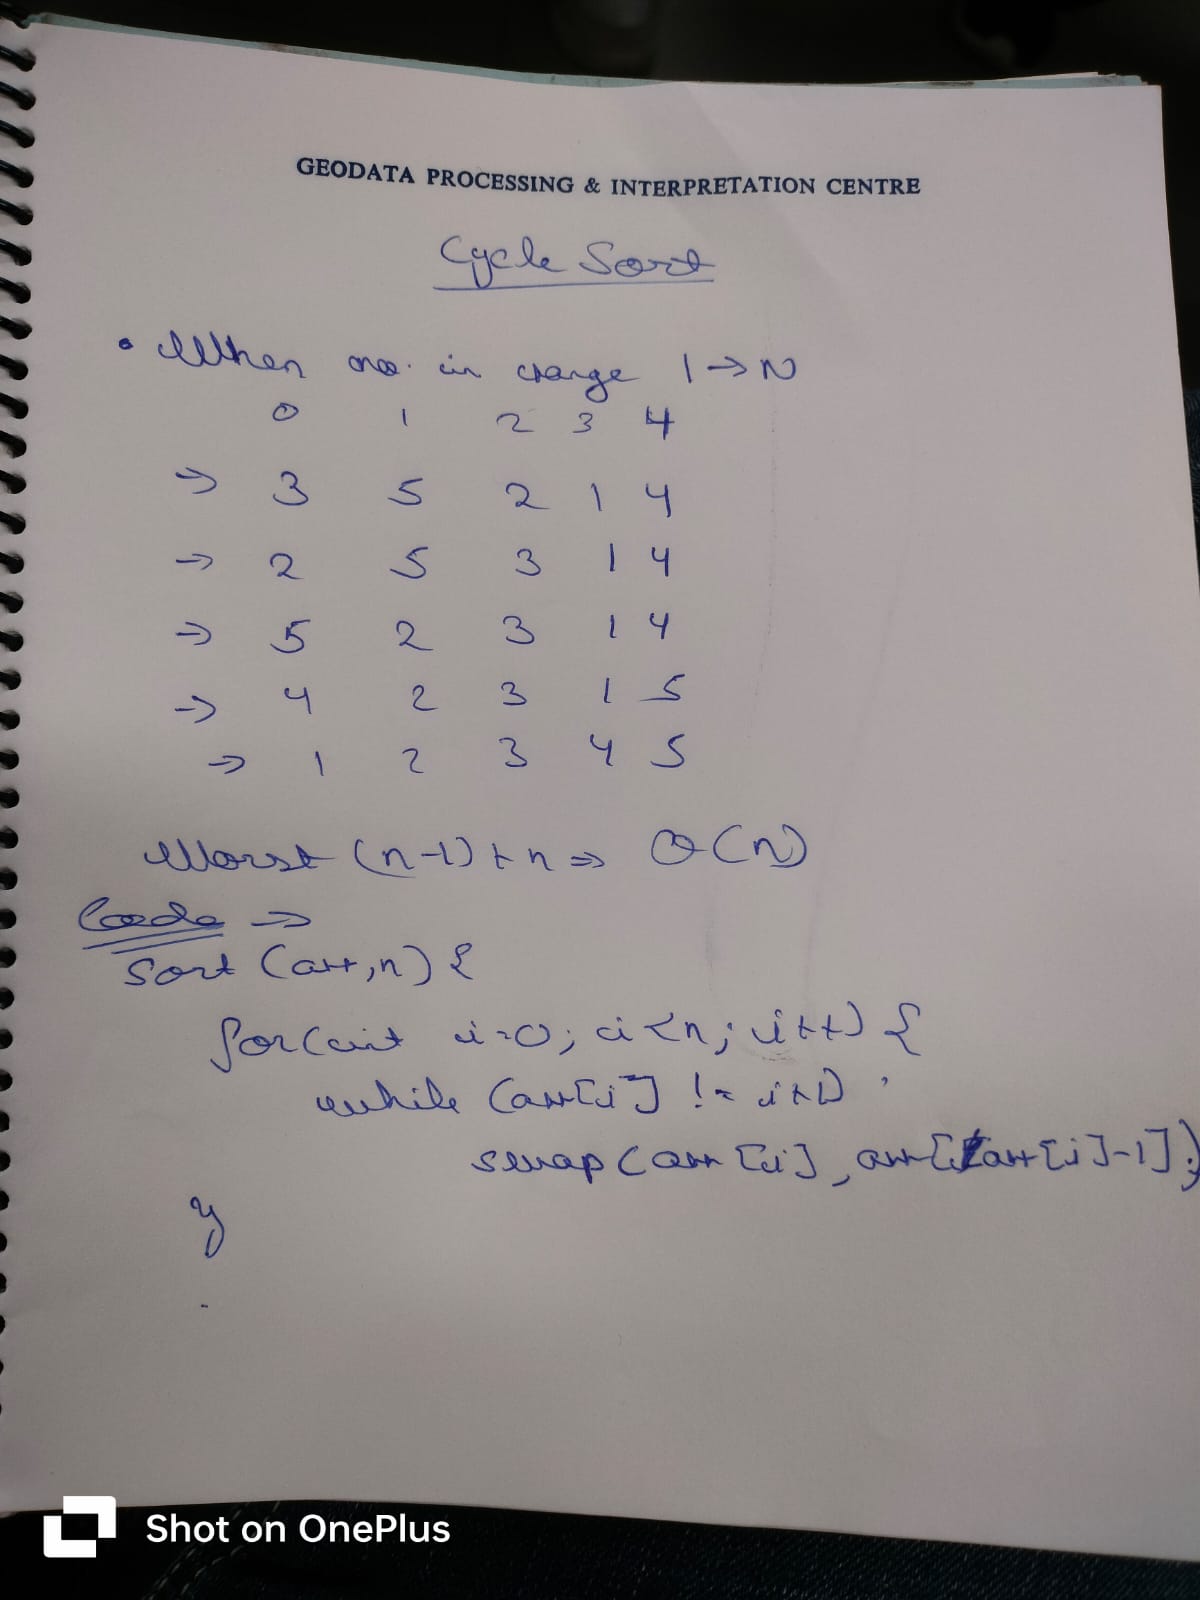 GEODATA PROCESSING & INTERPRETATION CENTRE
Cycle Sort
• When no. in range 1 → N
0 1 2 3 4
→ 3 5 2 1 4
→ 2 5 3 1 4
→ 5 2 3 1 4
→ 4 2 3 1 5
→ 1 2 3 4 5
Worst (n-1) + n ⇒ O(n)
Code →
Sort (arr,n) {
for(int i=0; i<n; i++) {
while (arr[i] != i+1)
swap (arr[i], arr[arr[i]-1]);
}
Shot on OnePlus